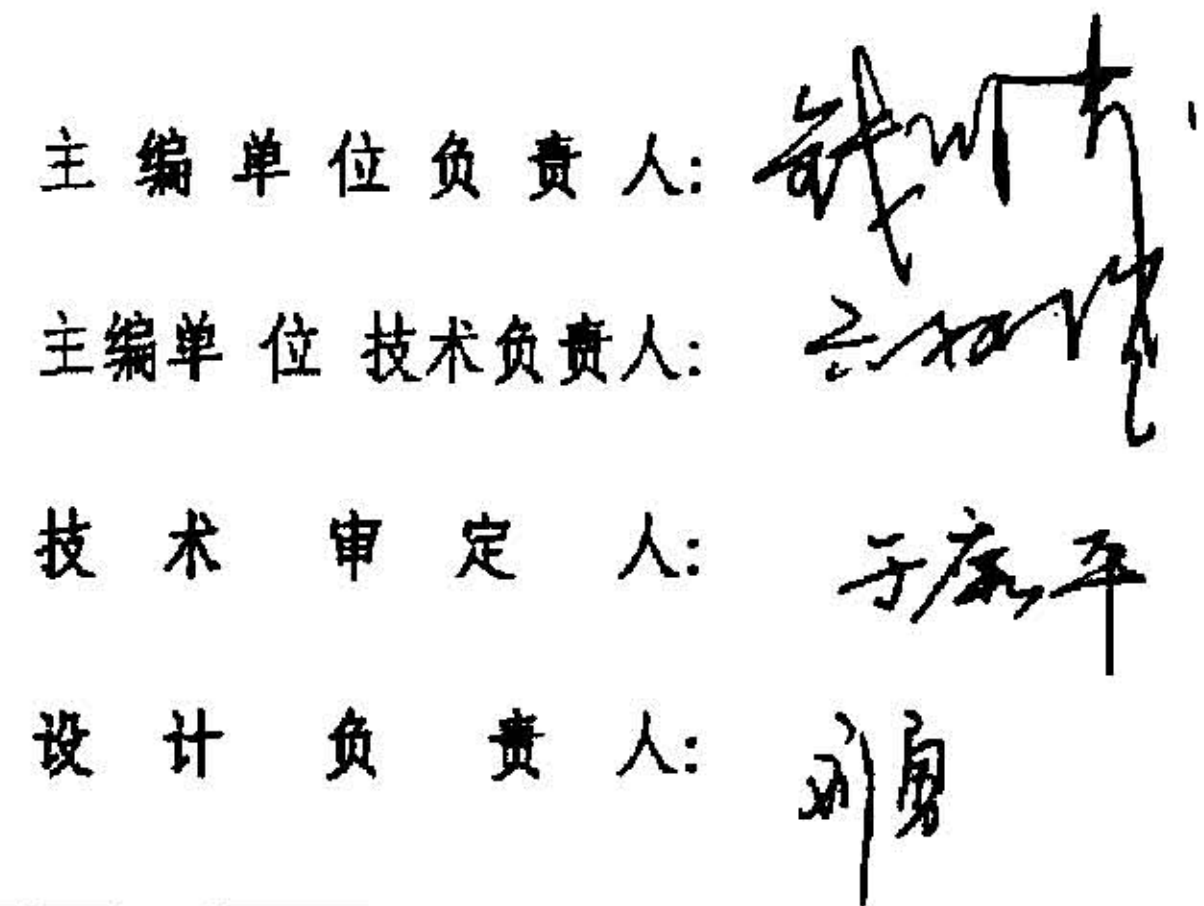 主编单位负责人:
主编单位技术负责人:
技术审定人: 于康平
设计负责人: 刘勇